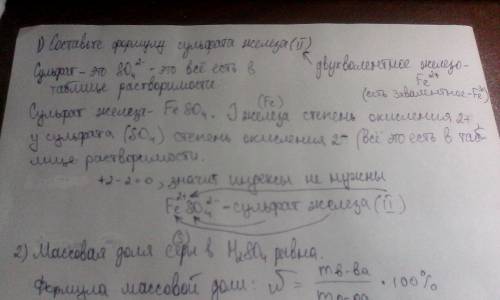 1) Составьте формулу сульфата железа (II)
Сульфат - это SO₄²⁻ - это всё есть в таблице растворимости
двухвалентное железо - Fe²⁺
(есть 3хвалентное - Fe³⁺)
Сульфат железа - FeSO₄. У железа (Fe) степень окисления 2+
у сульфата (SO₄) степень окисления 2- (всё это есть в таб-
лице растворимости.
+2-2=0, значит индексы не нужны
Fe²⁺SO₄²⁻ - сульфат железа (II)
(S)
2) Массовая доля серы в H₂SO₄ равна.
Формула массовой доли: W = m в-ва · 100%